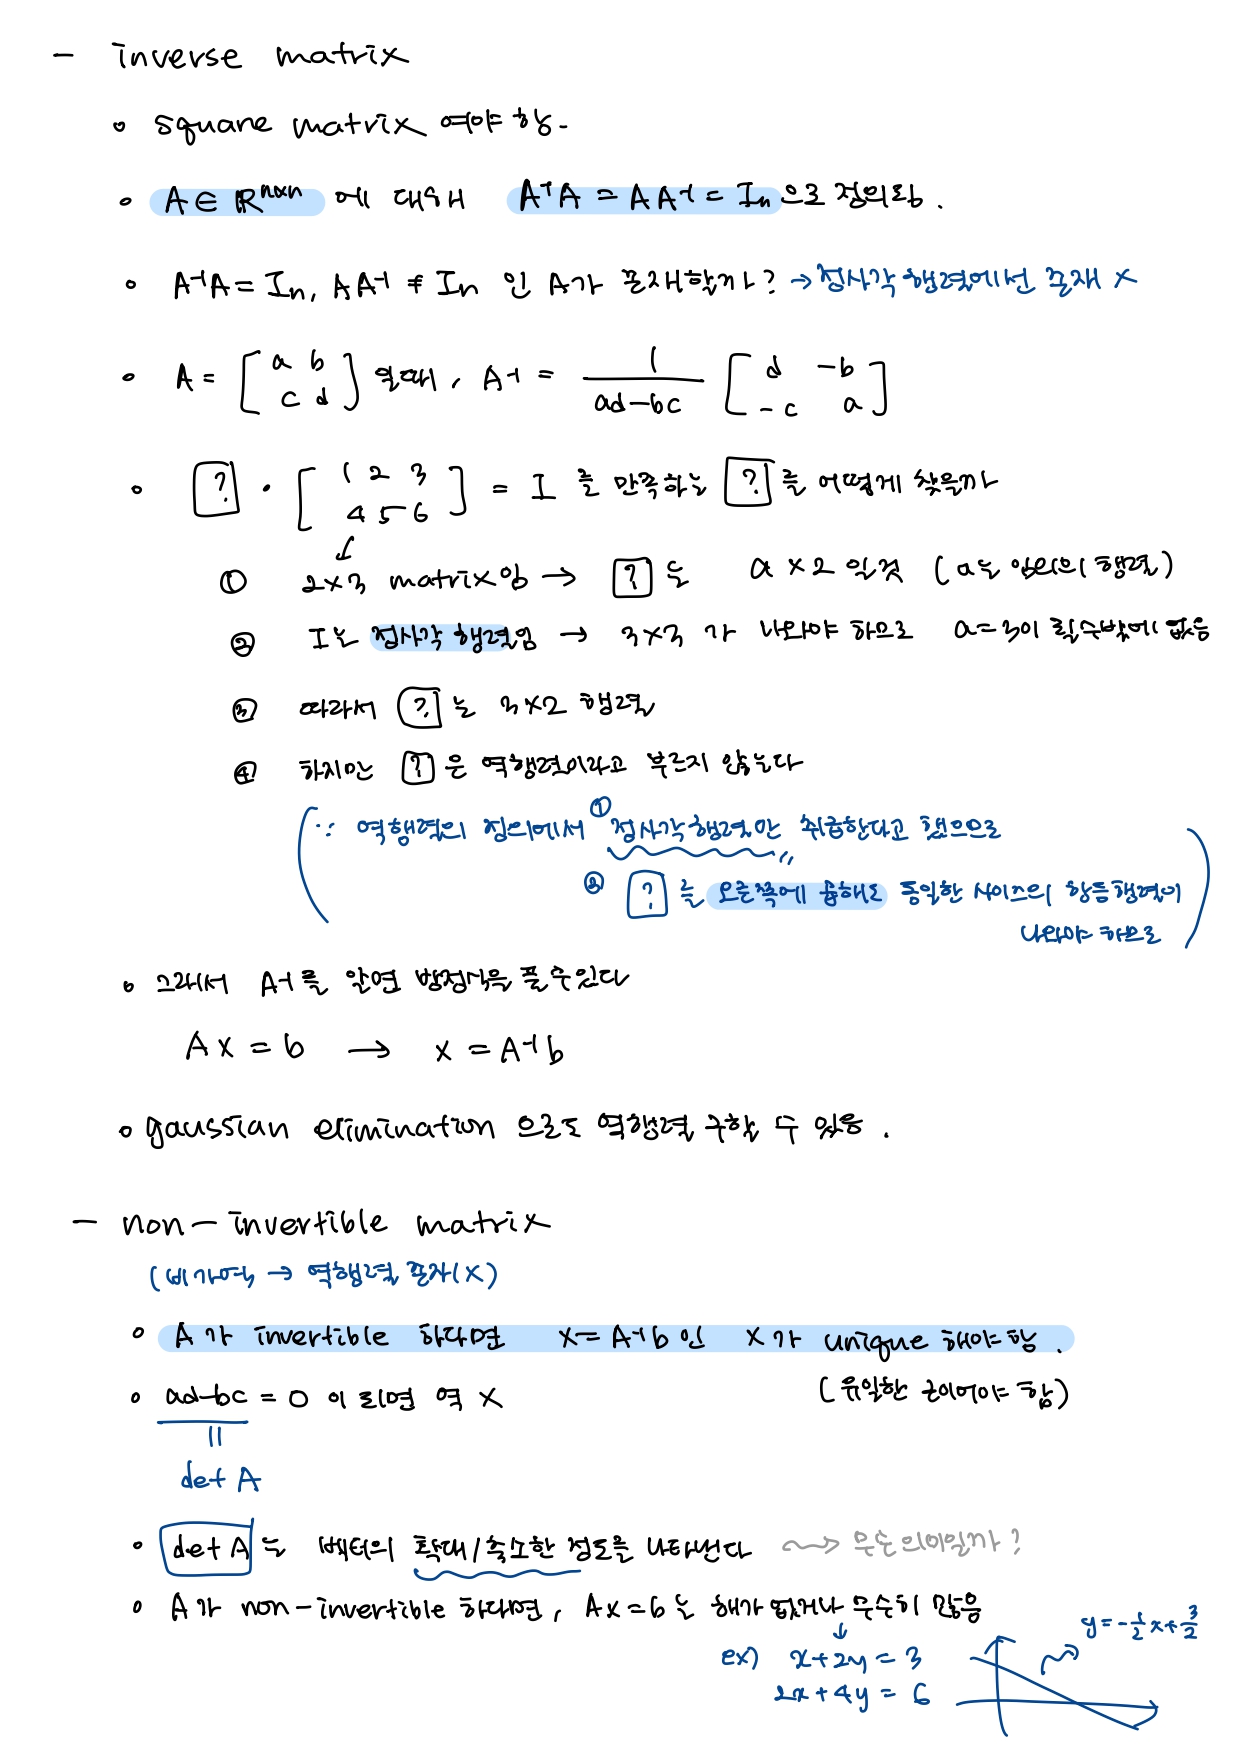 - inverse matrix
∘ square matrix 여야 함.
∘ A ∈ ℝⁿˣⁿ 에 대해 A⁻¹A = AA⁻¹ = Iₙ 으로 정의됨.
∘ A⁻¹A = Iₙ, AA⁻¹ ≠ Iₙ 인 A가 존재할까? → 정사각 행렬에선 존재 X
∘ A = [a b; c d] 일때, A⁻¹ = 1/(ad-bc) [d -b; -c a]
∘ [?] · [1 2 3; 4 5 6] = I 를 만족하는 [?]를 어떻게 찾을까
① 2×3 matrix임 → [?]는 a×2 일것 (a는 임의의 행렬)
② I는 정사각 행렬임 → 3×3 가 나와야 하므로 a=3이 될수밖에 없음
③ 따라서 [?]는 3×2 행렬
④ 하지만 [?]은 역행렬이라고 부르지 않는다
(∵ 역행렬의 정의에서 ① 정사각행렬만 취급한다고 했으므로
② [?]를 오른쪽에 곱해도 동일한 사이즈의 항등행렬이
나와야 하므로)
∘ 그래서 A⁻¹를 알면 방정식을 풀 수 있다
Ax = b → x = A⁻¹b
∘ gaussian elimination 으로도 역행렬 구할 수 있음.
- non-invertible matrix
(비가역 → 역행렬 존재(X)
∘ A가 invertible 하다면 x = A⁻¹b 인 x가 unique 해야함.
(유일한 근이어야 함)
∘ ad-bc = 0 이 되면 역 X
||
det A
∘ det A 는 벡터의 확대/축소한 정도를 나타낸다 ⇝ 무슨 의미일까?
∘ A가 non-invertible 하다면, Ax=b 는 해가 없거나 무수히 많음
↓
ex) x+2y = 3
2x+4y = 6
y = -1/2 x + 3/2